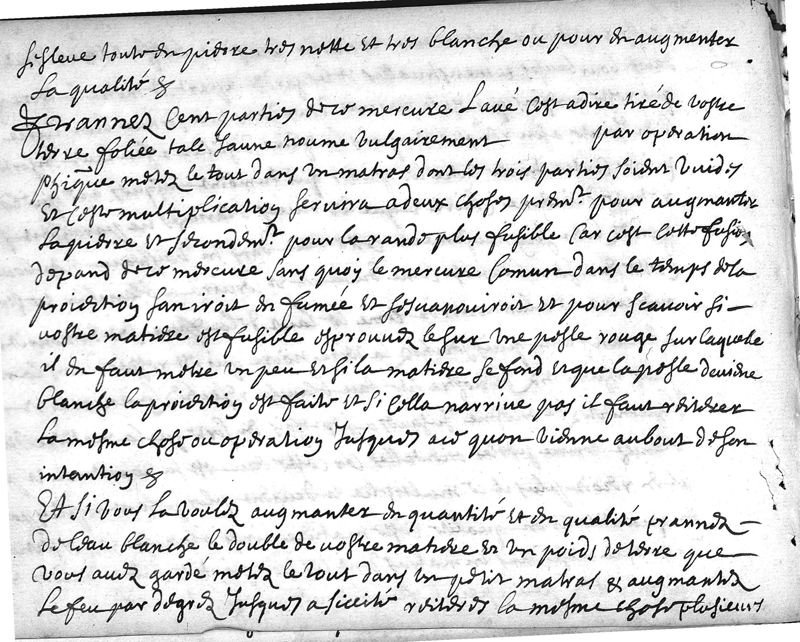 sesleve toute en pierre tres nette Et tres blanche ou pour en augmenter
La qualité &
prannez Cent parties de ce mercure Lavé Cest adire tiré de vostre
terre foliée talc Jaune noume vulgairement par operation
phique metez le tout dans un matras dont les trois parties soient vuides
Et Ceste multiplication servira a deux choses premt. pour augmanter
La pierre Et secondemt. pour la randre plus fusible Car cest Cette fusion
depand de ce mercure sans quoy le mercure Comun dans le temps de la
proiection san iroit en fumée Et sesvanouiroit Et pour scavoir si
vostre matiere est fusible esprouvez le sur une pesle rouge sur laquele
il en faut metre un peu Et si la matiere se fond Et que la pesle deviene
blanche la proiection est faite Et si Cella narrive pas il faut reiterer
La mesme chose ou operation Jusques a ce quon vienne au bout de son
intantion &
Et si vous La voulez augmanter en quantité Et en qualité prannez
de leau blanche le double de vostre matiere Et un poids de terre que
vous avez gardé metez le tout dans un petit matras & augmantez
Le feu par degrez Jusques a siccité reiteres la mesme chose plusieurs